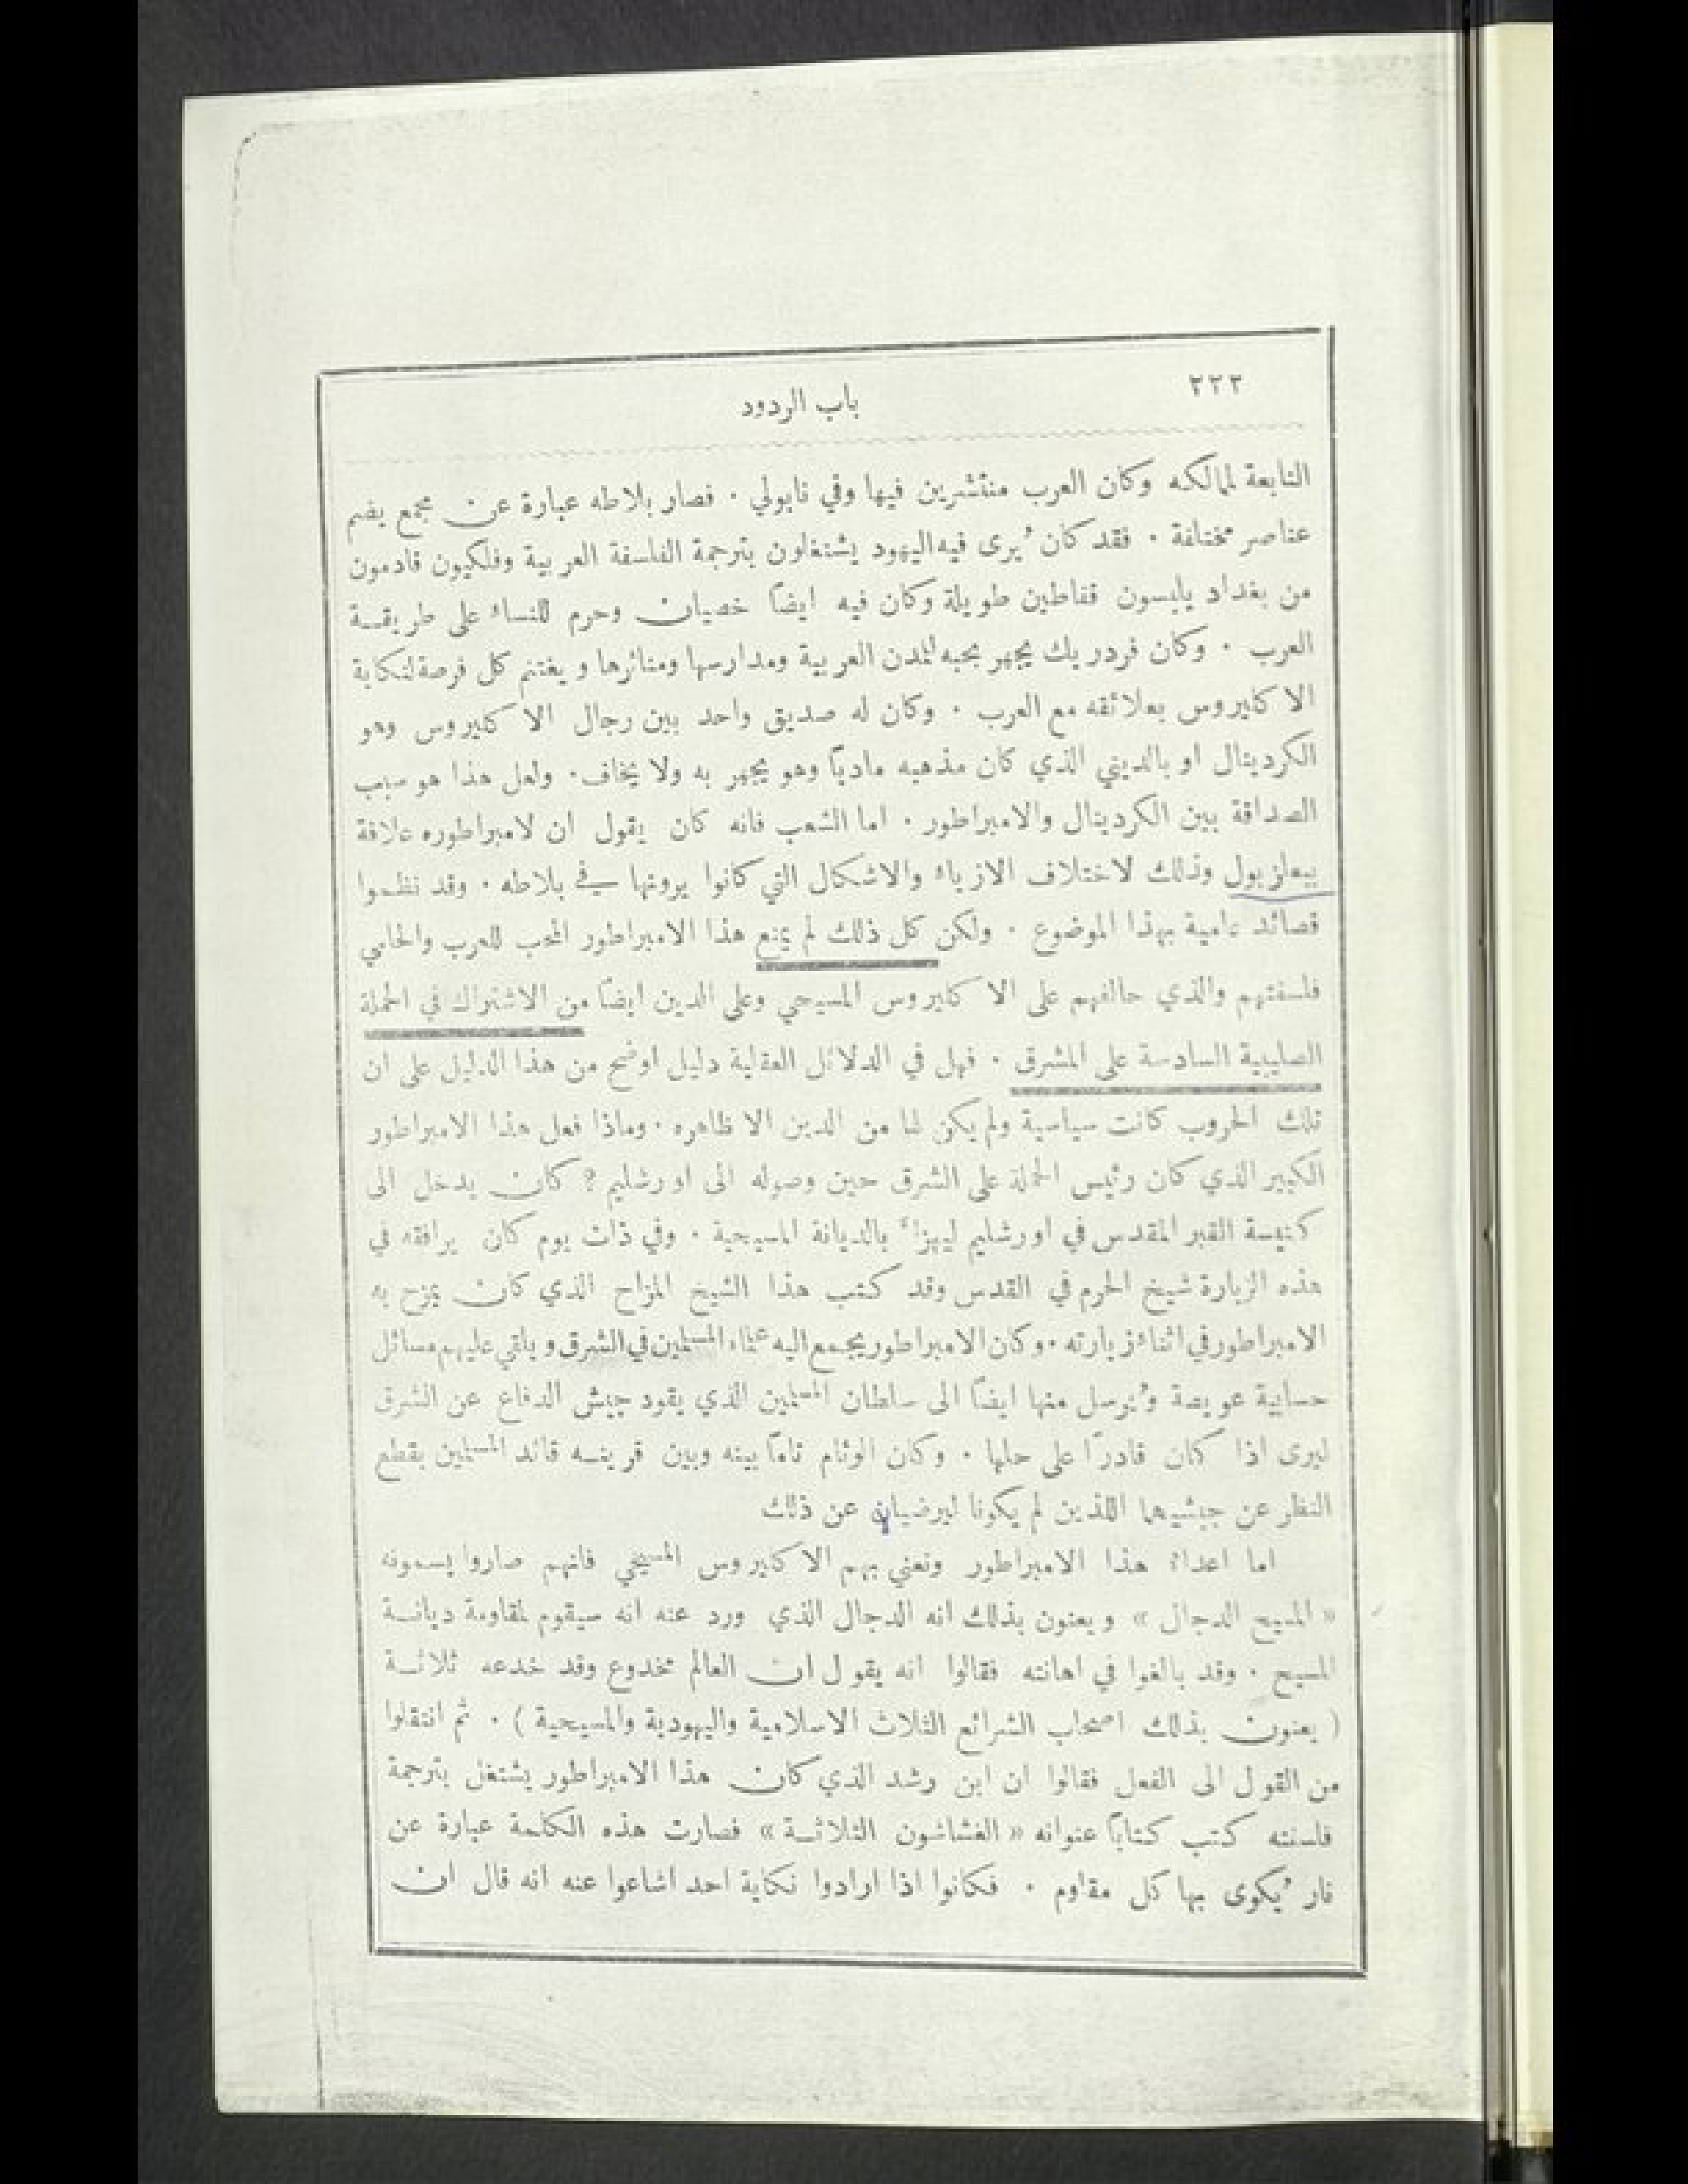 ٢٢٣
باب الردود
التابعة لمالكه وكان العرب منتشرين فيها وفي نابولي . فصار بلاطه عبارة عن مجمع يضم
عناصر مختلفة . فقد كان يُرى فيه اليهود يشتغلون بترجمة الفلسفة العربية وفلكيون قادمون
من بغداد يلبسون قفاطين طويلة وكان فيه ايضاً خصيان وحرم للنساء على طريقة
العرب . وكان فردريك يجهر بحبه لمدن العربية ومدارسها ومنائرها ويغتنم كل فرصة لنكاية
الاكليروس بعلائقه مع العرب . وكان له صديق واحد بين رجال الاكليروس وهو
الكردينال اوبالديني الذي كان مذهبه مادياً وهو يجهر به ولا يخاف . ولعل هذا هو سبب
الصداقة بين الكردينال والامبراطور . اما الشعب فانه كان يقول ان لامبراطوره علاقة
ببعلزبول وذلك لاختلاف الازياء والاشكال التي كانوا يرونها في بلاطه . وقد نظموا
قصائد عامية بهذا الموضوع . ولكن كل ذلك لم يمنع هذا الامبراطور المحب للعرب والحامي
فلسفتهم والذي حالفهم على الاكليروس المسيحي وعلى الدين ايضاً من الاشتراك في الحملة
الصليبية السادسة على المشرق . فهل في الدلائل العقلية دليل اوضح من هذا الدليل على ان
تلك الحروب كانت سياسية ولم يكن لها من الدين الا ظاهره . وماذا فعل هذا الامبراطور
الكبير الذي كان رئيس الحملة على الشرق حين وصوله الى اورشليم ? كان يدخل الى
كنيسة القبر المقدس في اورشليم ليهزأ بالديانة المسيحية . وفي ذات يوم كان يرافقه في
هذه الزيارة شيخ الحرم في القدس وقد كتب هذا الشيخ المزاح الذي كان يمزح به
الامبراطور في اثناء زيارته . وكان الامبراطور يجمع اليه علماء المسلمين في الشرق ويلقي عليهم مسائل
حسابية عويصة ويُرسل منها ايضاً الى سلطان المسلمين الذي يقود جيش الدفاع عن الشرق
ليرى اذا كان قادراً على حلها . وكان الوئام تاماً بينه وبين قرينه قائد المسلمين بقطع
النظر عن جيشيهما اللذين لم يكونا ليرضيان عن ذلك
اما اعداء هذا الامبراطور ونعني بهم الاكليروس المسيحي فانهم صاروا يسمونه
« المسيح الدجال » ويعنون بذلك انه الدجال الذي ورد عنه انه سيقوم لمقاومة ديانة
المسيح . وقد بالغوا في اهانته فقالوا انه يقول ان العالم مخدوع وقد خدعه ثلاثة
( يعنون بذلك اصحاب الشرائع الثلاث الاسلامية واليهودية والمسيحية ) . ثم انتقلوا
من القول الى الفعل فقالوا ان ابن رشد الذي كان هذا الامبراطور يشتغل بترجمة
فلسفته كتب كتاباً عنوانه « الغشاشون الثلاثة » فصارت هذه الكلمة عبارة عن
نار يُكوى بها كل مقاوم . فكانوا اذا ارادوا نكاية احد اشاعوا عنه انه قال ان